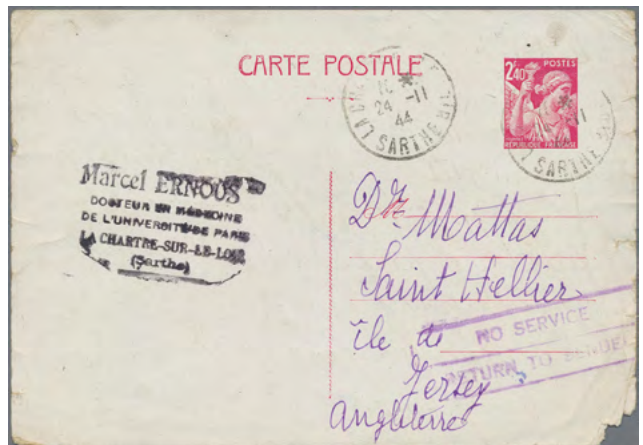 CARTE POSTALE
2f40 POSTES
RÉPUBLIQUE FRANÇAISE
24 -11
44
SARTHE
SARTHE
Marcel ERNOUS
DOCTEUR EN MÉDECINE
DE L'UNIVERSITÉ DE PARIS
LA CHARTRE-SUR-LE-LOIR
(Sarthe)
Dr. Mattas
Saint Hellier
île de
Jersey
Angleterre
NO SERVICE
RETURN TO SENDER